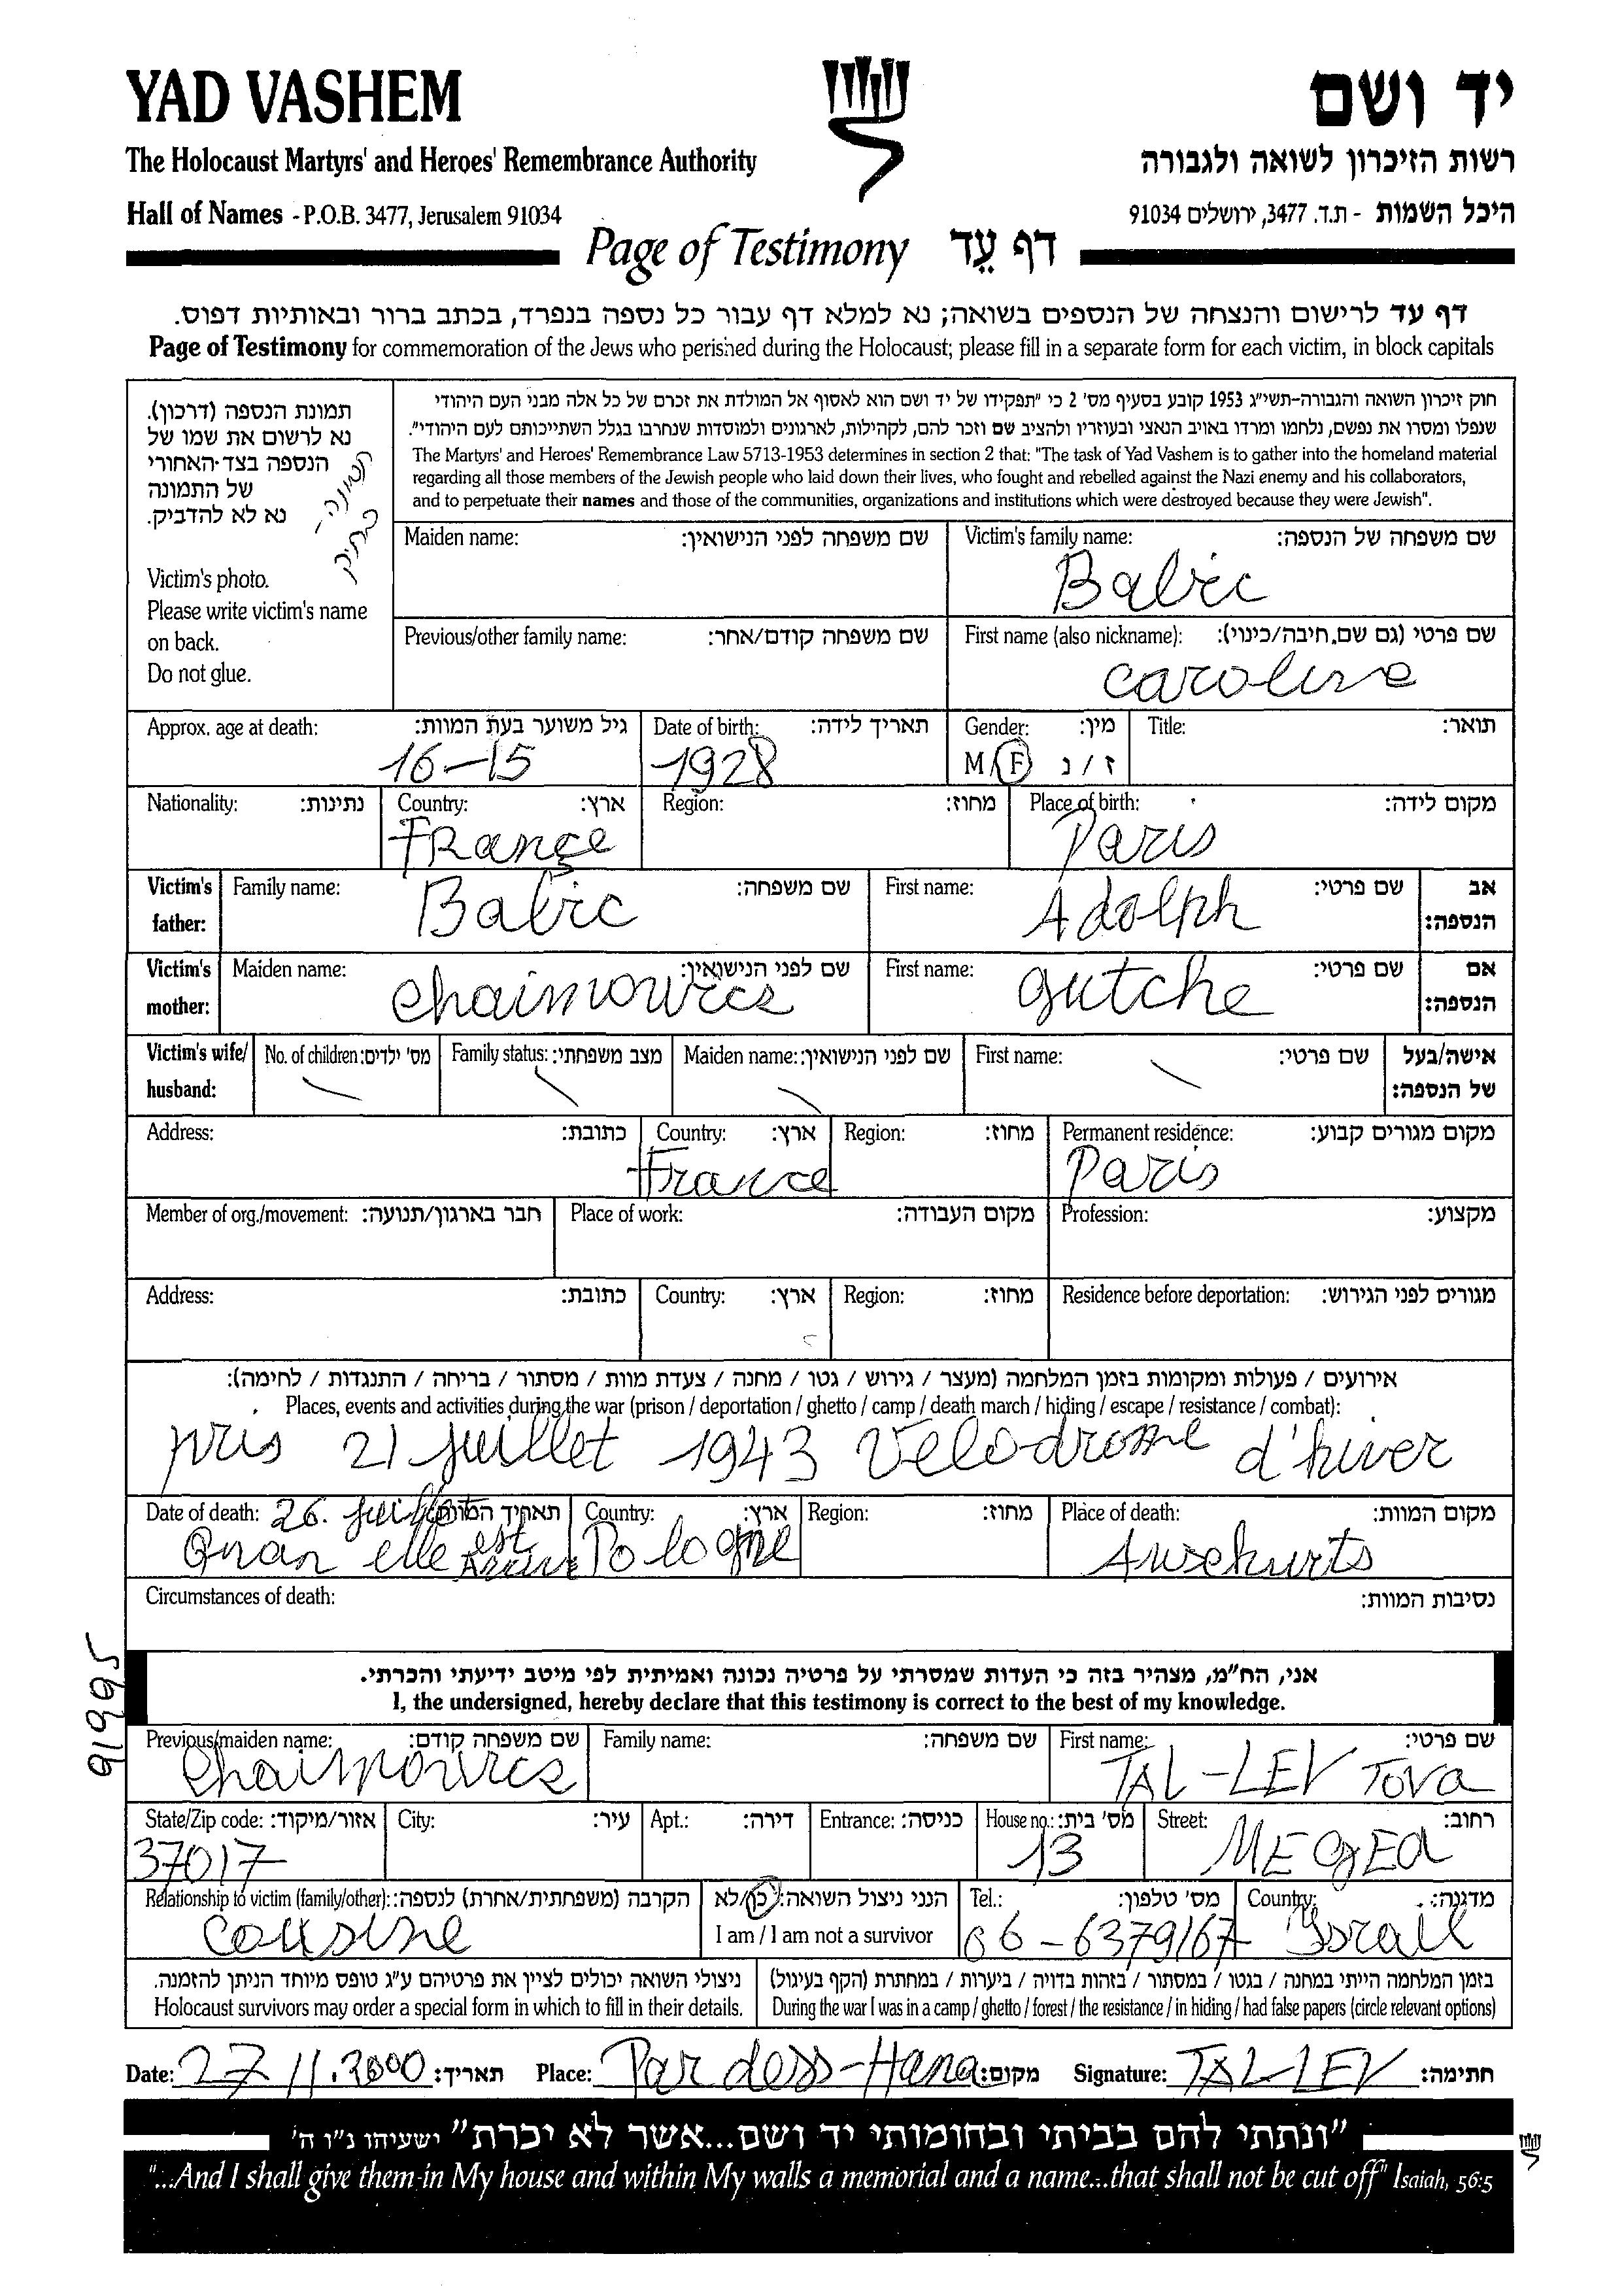 YAD VASHEM
יד ושם
The Holocaust Martyrs' and Heroes' Remembrance Authority
רשות הזיכרון לשואה ולגבורה
Hall of Names - P.O.B. 3477, Jerusalem 91034
היכל השמות - ת.ד. 3477, ירושלים 91034
Page of Testimony דף עֵד
דף עד לרישום והנצחה של הנספים בשואה; נא למלא דף עבור כל נספה בנפרד, בכתב ברור ובאותיות דפוס.
Page of Testimony for commemoration of the Jews who perished during the Holocaust; please fill in a separate form for each victim, in block capitals
תמונת הנספה (דרכון).
נא לרשום את שמו של
הנספה בצד האחורי
של התמונה
נא לא להדביק.
תמונה
בתיק
Victim's photo.
Please write victim's name
on back.
Do not glue.
חוק זיכרון השואה והגבורה-תשי"ג 1953 קובע בסעיף מס' 2 כי "תפקידו של יד ושם הוא לאסוף אל המולדת את זכרם של כל אלה מבני העם היהודי
שנפלו ומסרו את נפשם, נלחמו ומרדו באויב הנאצי ובעוזריו ולהציב שם וזכר להם, לקהילות, לארגונים ולמוסדות שנחרבו בגלל השתייכותם לעם היהודי".
The Martyrs' and Heroes' Remembrance Law 5713-1953 determines in section 2 that: "The task of Yad Vashem is to gather into the homeland material
regarding all those members of the Jewish people who laid down their lives, who fought and rebelled against the Nazi enemy and his collaborators,
and to perpetuate their names and those of the communities, organizations and institutions which were destroyed because they were Jewish".
Maiden name: שם משפחה לפני הנישואין:
Victim's family name: שם משפחה של הנספה:
Babic
Previous/other family name: שם משפחה קודם/אחר:
First name (also nickname): שם פרטי (גם שם חיבה/כינוי):
caroline
Approx. age at death: גיל משוער בעת המוות:
16-15
Date of birth: תאריך לידה:
1928
Gender: מין:
M/F ז / נ
Title: תואר:
Nationality: נתינות:
Country: ארץ:
France
Region: מחוז:
Place of birth: מקום לידה:
Paris
Victim's father: Family name: שם משפחה:
Babic
First name: שם פרטי: אב הנספה:
Adolph
Victim's mother: Maiden name: שם לפני הנישואין:
Chaimovics
First name: שם פרטי: אם הנספה:
gutche
Victim's wife/ husband: No. of children: מס' ילדים: Family status: מצב משפחתי: Maiden name: שם לפני הנישואין: First name: שם פרטי: אישה/בעל של הנספה:
Address: כתובת:
Country: ארץ:
France
Region: מחוז:
Permanent residence: מקום מגורים קבוע:
Paris
Member of org./movement: חבר בארגון/תנועה: Place of work: מקום העבודה: Profession: מקצוע:
Address: כתובת: Country: ארץ: Region: מחוז: Residence before deportation: מגורים לפני הגירוש:
אירועים / פעולות ומקומות בזמן המלחמה (מעצר / גירוש / גטו / מחנה / צעדת מוות / מסתור / בריחה / התנגדות / לחימה):
Places, events and activities during the war (prison / deportation / ghetto / camp / death march / hiding / escape / resistance / combat):
pris 21 juillet 1943 Velodrome d'hiver
Date of death: תאריך המוות:
26. juillet
Quan elle est
Country: ארץ:
Pologne
Region: מחוז:
Place of death: מקום המוות:
Auschwits
Circumstances of death: נסיבות המוות:
91995
אני, הח"מ, מצהיר בזה כי העדות שמסרתי על פרטיה נכונה ואמיתית לפי מיטב ידיעתי והכרתי.
I, the undersigned, hereby declare that this testimony is correct to the best of my knowledge.
Previous/maiden name: שם משפחה קודם:
Chaimovics
Family name: שם משפחה:
First name: שם פרטי:
TAL-LEV Tova
State/Zip code: אזור/מיקוד:
37017
City: עיר: Apt.: דירה: Entrance: כניסה:
House no.: מס' בית:
13
Street: רחוב:
MEGEd
Relationship to victim (family/other): הקרבה (משפחתית/אחרת) לנספה:
cousine
הנני ניצול השואה: כן/לא
I am / I am not a survivor
Tel.: מס' טלפון:
06-6379167
Country: מדינה:
Israil
ניצולי השואה יכולים לציין את פרטיהם ע"ג טופס מיוחד הניתן להזמנה.
Holocaust survivors may order a special form in which to fill in their details.
בזמן המלחמה הייתי במחנה / בגטו / במסתור / בזהות בדויה / ביערות / במחתרת (הקף בעיגול)
During the war I was in a camp / ghetto / forest / the resistance / in hiding / had false papers (circle relevant options)
Date: 27 11.2000 תאריך: Place: Pardess-Hana מקום: Signature: TAL-LEV חתימה:
"ונתתי להם בביתי ובחומותי יד ושם...אשר לא יכרת" ישעיהו נ"ו ה'
"...And I shall give them in My house and within My walls a memorial and a name...that shall not be cut off" Isaiah, 56:5